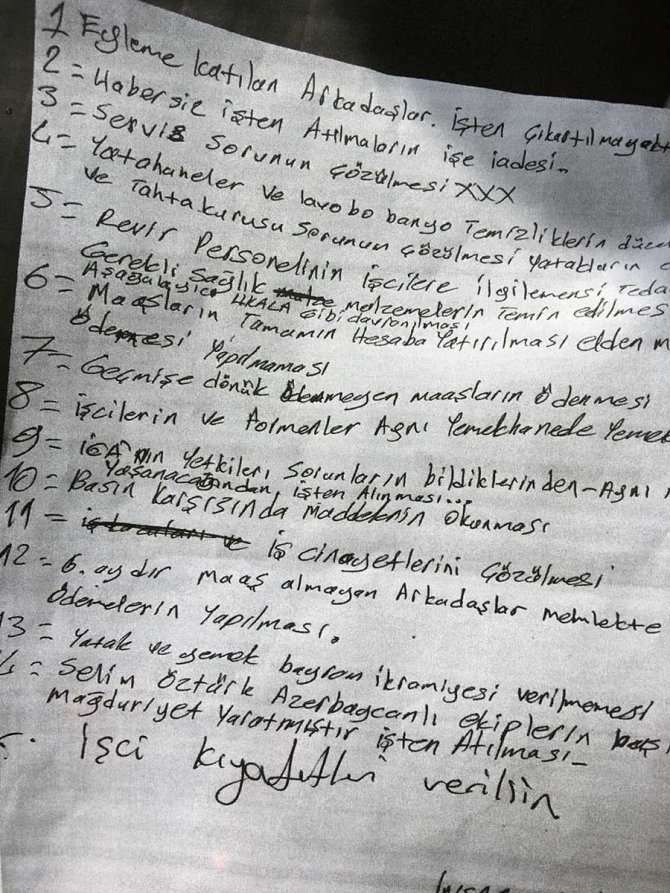 1 Eyleme katılan Arkadaşlar. İşten Çıkartılmayak
2 = Habersiz işten Atılmaların işe iadesi.
3 = Servis Sorunun Çözülmesi XXX
4 = Yatahaneler ve lavobo banyo Temizliklerin düze
ve Tahtakurusu Sorunun çözülmesi yatakların
5 = Revir Personelinin İşcilere ilgilemensi Teda
Gerekli Sağlık melzemelerin Temin edilmes
Aşağılayıcı HKALA Gibi davranılması
6 = Maaşların Tamamın Hesaba Yatırılması elden m
Ödemesi Yapılmaması
7 = Geçmişe dönük Ödenmeyen maaşların Ödenmesi
8 = işcilerin ve Formenler Aynı Yemekhanede Yemek
9 = iGA'nın Yetkileri Sorunların bildiklerinden - Aynı
Yaşanacağından, işten Alınması...
10 = Basın karşısında maddeknin okunması
11 = iş cinayetlerini Çözülmesi
12 = 6. aydır maaş almayan Arkadaşlar memlekte
Ödemelerin Yapılması.
13 = Yatak ve yemek bayram ikramiyesi verilmemesi
4 = Selim Öztürk Azerbaycanlı ekiplerin
Mağduriyet Yaratmıştır işten Atılması -
İşci kıyafetleri verilsin